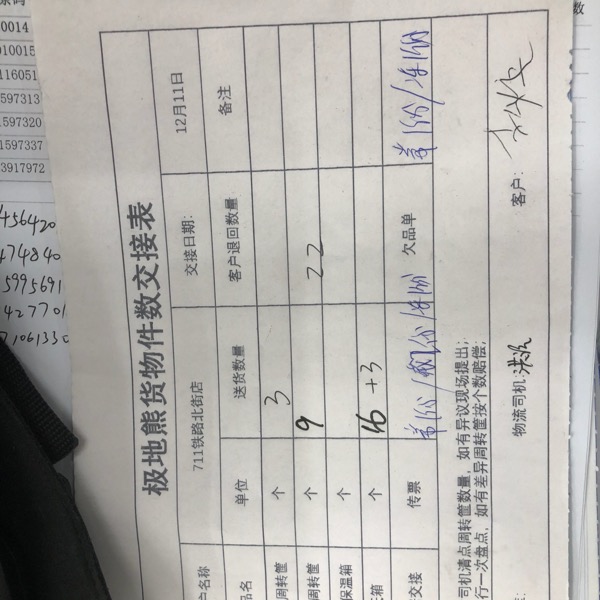 极地熊货物件数交接表
户名称 711铁路北街店 交接日期: 12月11日
品名 单位 送货数量 客户退回数量 备注
周转筐 个 3
周转筐 个 9 22
保温箱 个
纸箱 个 16 +3
交接 传票 欠品单
司机清点周转筐数量，如有异议现场提出；
行一次盘点，如有差异周转筐按个数赔偿；
物流司机: 客户:
0014
010015
116051
597313
1597320
1597337
3917972
456420
474840
5995691
427701
1061330